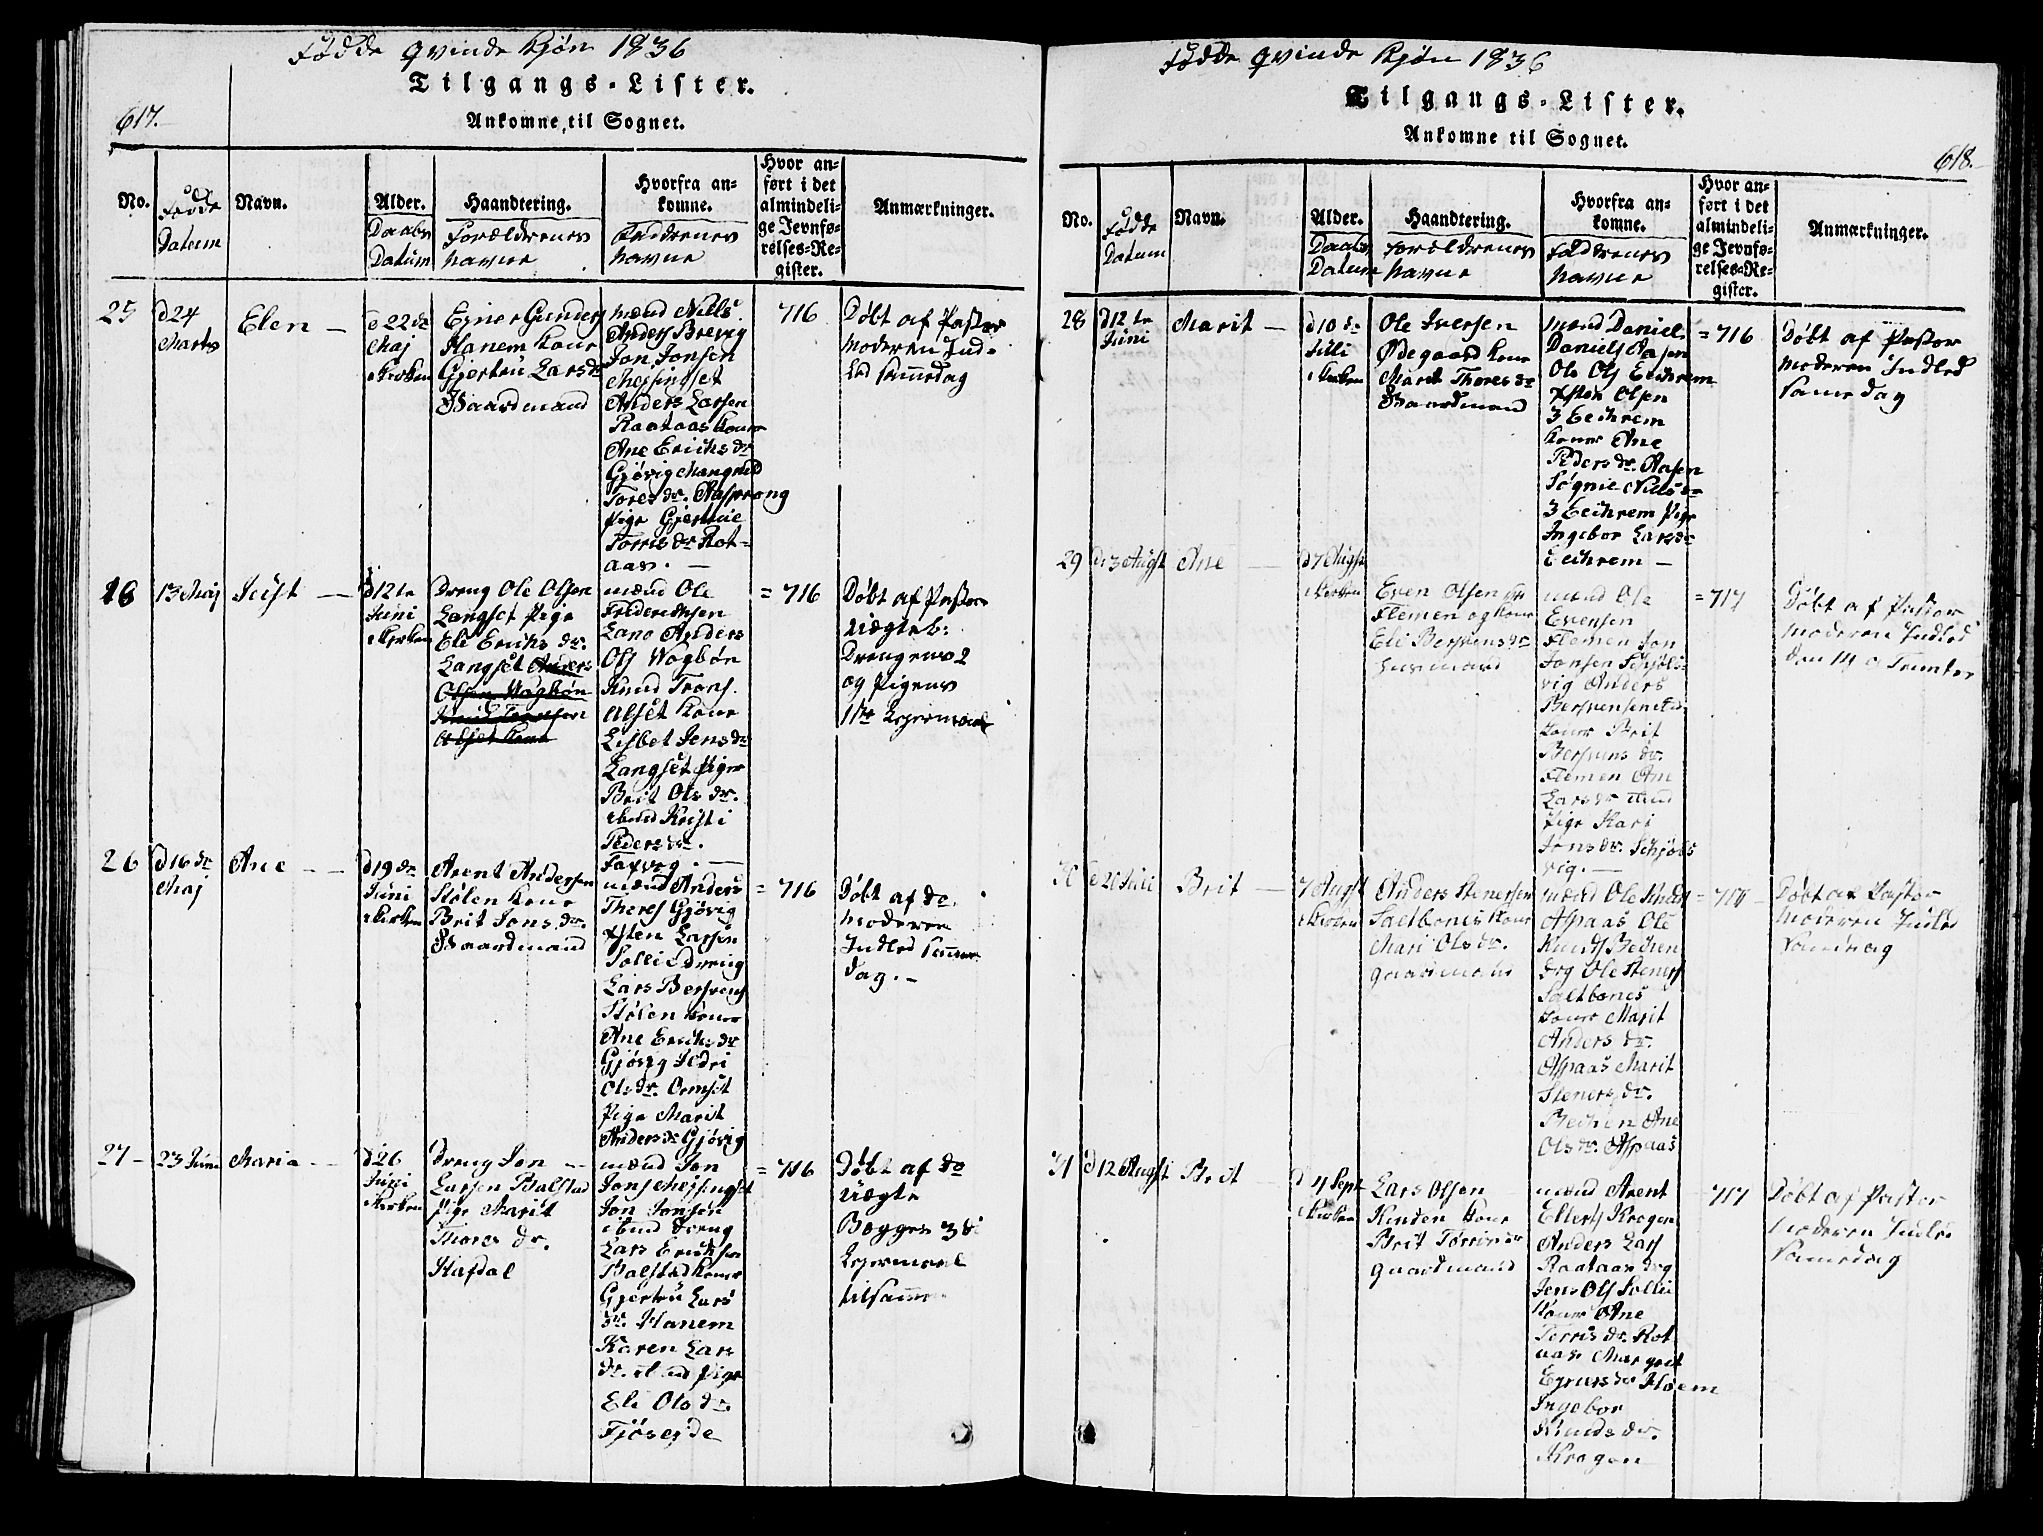 Fødde qvinde Kjøn 1836
Tilgangs-Lister.
617.
Ankomne til Sognet.
No.
Fødde
Datum
Navn.
Alder.
Daabs
Datum
Haandtering.
Forældrenes
Navne
Hvorfra an-
komne.
Faddrenes
Navne
Hvor an-
ført i det
almindeli-
ge Jevnfø-
relses-Re-
gister.
Anmærkninger.
25
d 24
Marts
Elen —
d 22de
Maj
i Kirken
Ejner Gunders
Hanem Kone
Gjertru Larsdr
Gaardmand
mænd Nills
Anders Brevig
Jon Jonsen
Messingset
Anders Larsen
Raataas Koner
Ane Eriks dr
Gjøvig Mangnild
Tores dr. Aasprang
Pige Gjertrue
Torris dr Rot-
aas. —
716
Døbt af Pastor
Moderen Ind-
led samedag
26
13 Maj
—
d 12te
Juni
i Kirken
Dreng Ole Olsen
Langset Pige
Eli Eriks dr.
Langset Anders
Olsen Vogbøn
mænd Ole
Fredriksen
Anders
Ols Vogbøn
Knud Trons.
Alset Kone
Lisbet Jens dr
Langset Piger
Brit Ols dr.
Peders dr.
= 716
Døbt af Pastor
Uægteb:
Drengens 2
og Pigens
1ste Lejermaal
26
d 16 de
Maj
Ane —
d 19 de
Juni
i Kirken
Arent Andersen
Stølen Kone
Brit Jons dr.
Gaardmand
mænd Anders
Thores Gjøvig
Østen Larsen
Sollie dreng
Lars Bersvens
Stølen Koner
Ane Eriks dr
Gjøvig
Ols dr. Ormset
Pige Marit
Anders dr Gjøvig
= 716
Døbt af do
Moderen
Indled samme
dag. —
27 —
23 Juni
Maria —
d 26
Juni
i Kirken
Dreng Jon —
Larsen Balstad
Pige Marit
Thores dr.
Hafdal
mænd Jon
Jons Messingset
Jon Jonsen
ibid dreng
Lars Eriksen
Balstad Koner
Gjertru Lars
dr. Hanem
Karen Lars
dr. ibid Pige
Eli Ols dr.
Fjøseide
= 716
Døbt af do
Uægte
Begges 3de
Lejermaal
tilsamm.
Fødde qvinde Kjøn 1836
Tilgangs-Lister.
Ankomne til Sognet.
618.
No.
Fødde
Datum
Navn.
Alder.
Daabs
Datum
Haandtering.
Forældrenes
Navne
Hvorfra an-
komne.
Faddrenes
Navne
Hvor an-
ført i det
almindeli-
ge Jevnfø-
relses-Re-
gister.
Anmærkninger.
28
d 12te
Juni
Marit —
d 10 de
Julli
i Kirken
Ole Iversen
Ødegaard Kone
Marit Thores dr
Gaardmand
mænd Daniel
Daniels Aasen
Ole Ols Eeihrem
Østen Olsen
3 Eeihrem
Koner Ane
Peders dr. Aasen
Søgnie Nils dr
3 Eeihrem Pige
Ingebor Lars dr
Eeihrem —
= 716
Døbt af Pastor
Moderen Indled
Same dag
29
d 3 Augst
Ane —
d 7 Augst
i Kirken
Even Olsen
Flemen og Kone
Eli Bersvens dr
Huusmand
mænd Ole
Evensen
Flemen Jon
Jonsen Schjøls-
vig Anders
Bersvensen
Koner Brit
Bersvens dr.
Flemen Ane
Lars dr ibid
Pige Kari
Jons dr. Schjøls
vig. —
= 717
Døbt af Pastor
Moderen Indled
den 14 a Trinita
30
d 20 Juli
Brit —
7 Augst
i Kirken
Anders Stenersen
Saltbones Kone
Mari Ols dr.
gaardmand
mænd Ole Knuds
Aspaas Ole
Knuds Bechen
drg Ole Steners
Saltbones
Koner Marit
Anders dr.
Aspaas Marit
Steners dr.
Bechen Ane
Ols dr. Aspaas
= 717 —
Døbt af Pastor
Moderen Indled
Samedag
31
d 12 Augst
Brit —
d 4 Sept
i Kirken
Lars Olsen
Kinden Kone
Brit Torris dr
gaardmand
mænd Arent
Ellerts Krogen
Anders Lars
Raataas drg
Jens Ols Sollie
Koner Ane
Torris dr. Rot
aas Margrit
Ejners dr Hoem
Ingebor
Knuds dr.
Krogen
— 717
Døbt af Pastor
Moderen Indled
Samedag